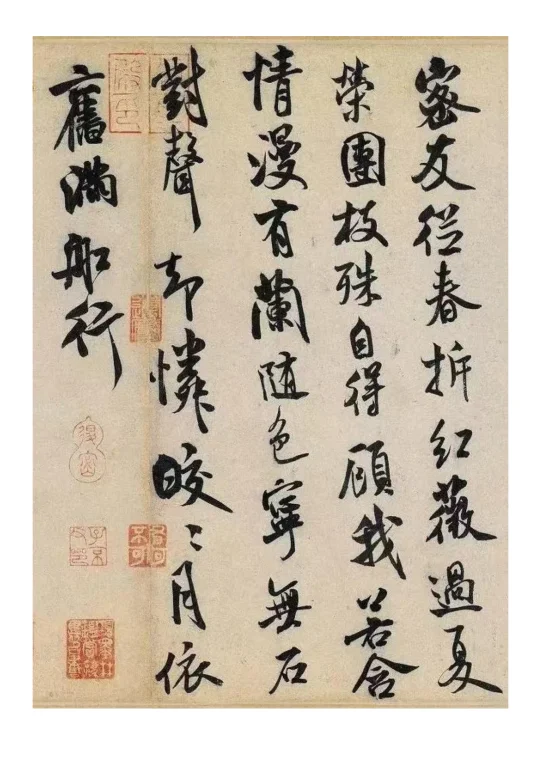 密友從春拆紅薇過夏
榮團枝殊自得顧我若含
情漫有蘭随色寧無石
對聲却憐皎〻月依
舊滿船行